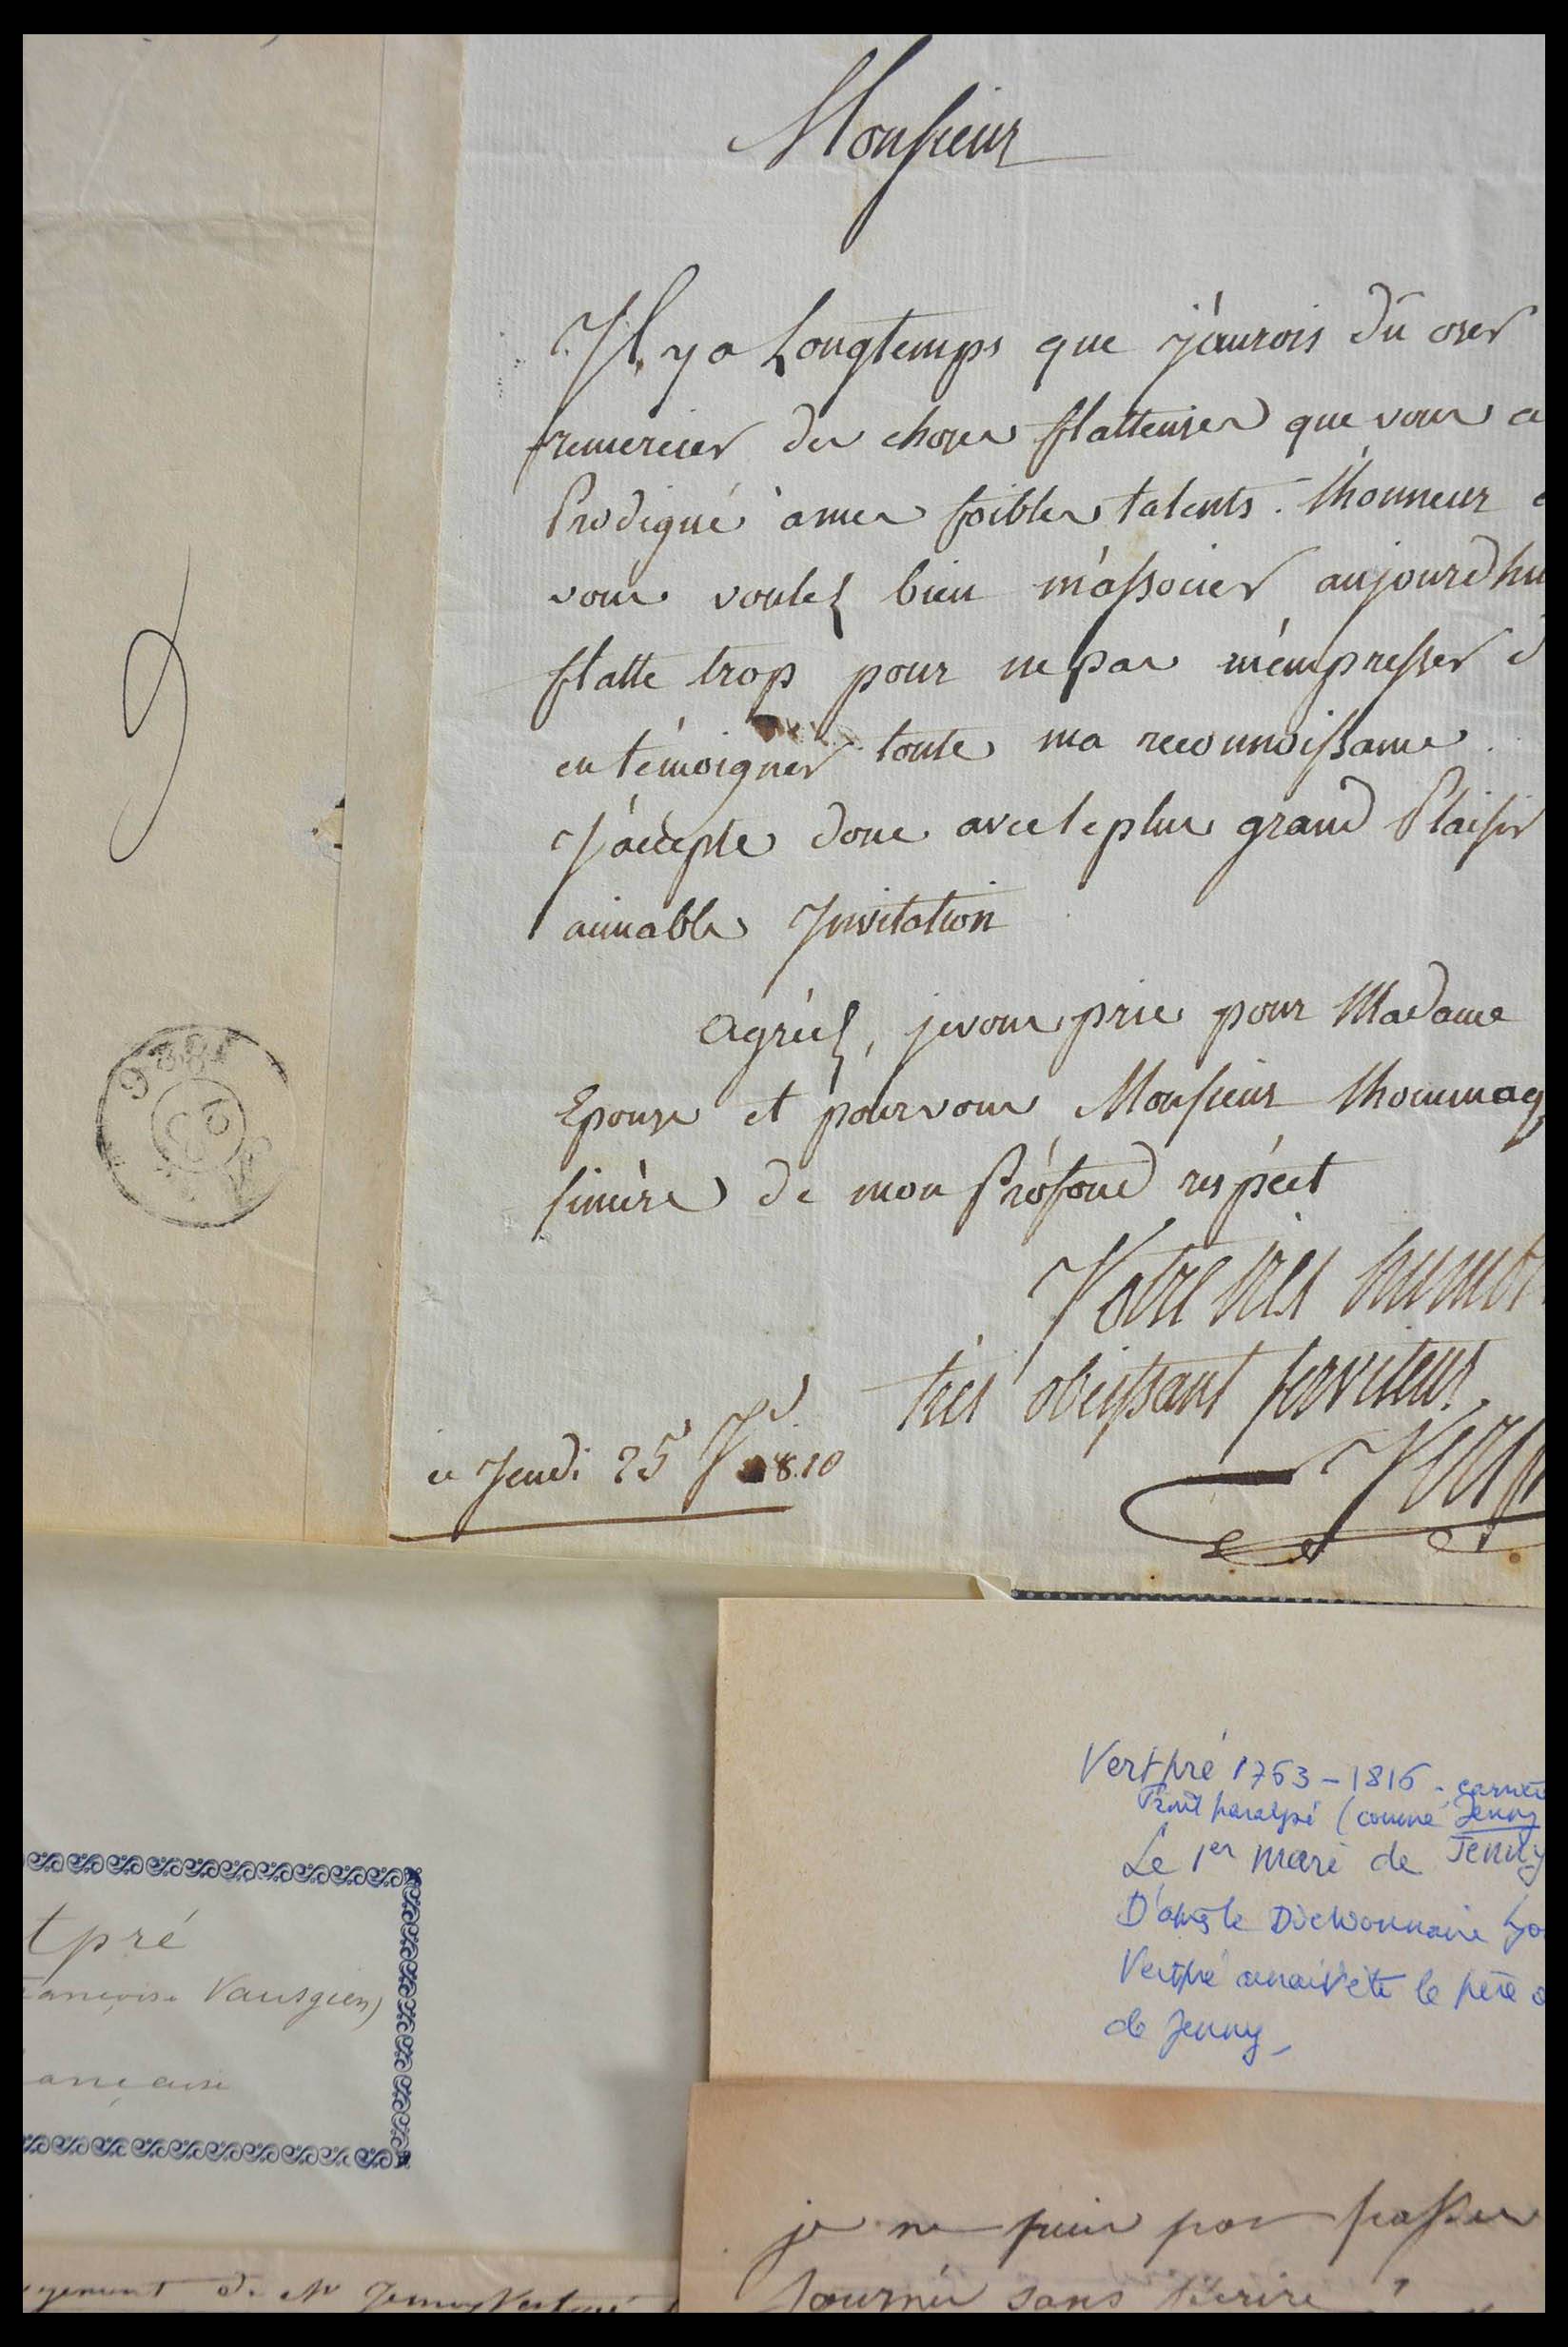 Monsieur
Il y a Longtemps que j'aurois dû oser
remercier des choses flatteuses que vous a
Prodigué à mes foibles talents. l'honneur
vous voulez bien m'associer aujourdhu
flatte trop pour ne pas m'empresser d
en témoigner toute ma reconnoissance.
J'accepte donc avec le plus grand Plaisir
aimable Invitation
Agréez, je vous prie pour Madame
Epouse et pour vous Monsieur l'hommag
sincère de mon Profond respéct
Votre très humbl
très obeissant serviteur.
ce Jeudi 25 1810
Vertpré 1763 - 1816 -
(comme Jenny
Le 1er mari de Jenny
D'après le Dictionnaire Lyo
Vertpré aurait été le père
de Jenny
tpré
ançoise Vausgien)
ançaise
je ne puis pas passer
journée sans t'écrire
gement de Me Jenny Vertpré